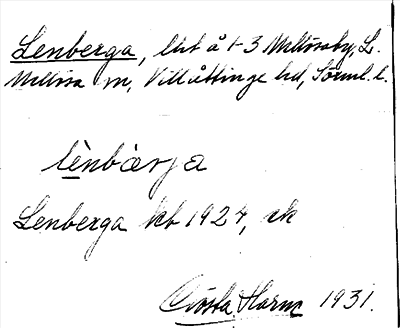 Lenberga, lht å 1-3 Mellösaby, L.
Mellösa sn, Villåttinge hd, Sörml. l.
lènbærja
Lenberga kb 1924, ek
Gösta Harm 1931.